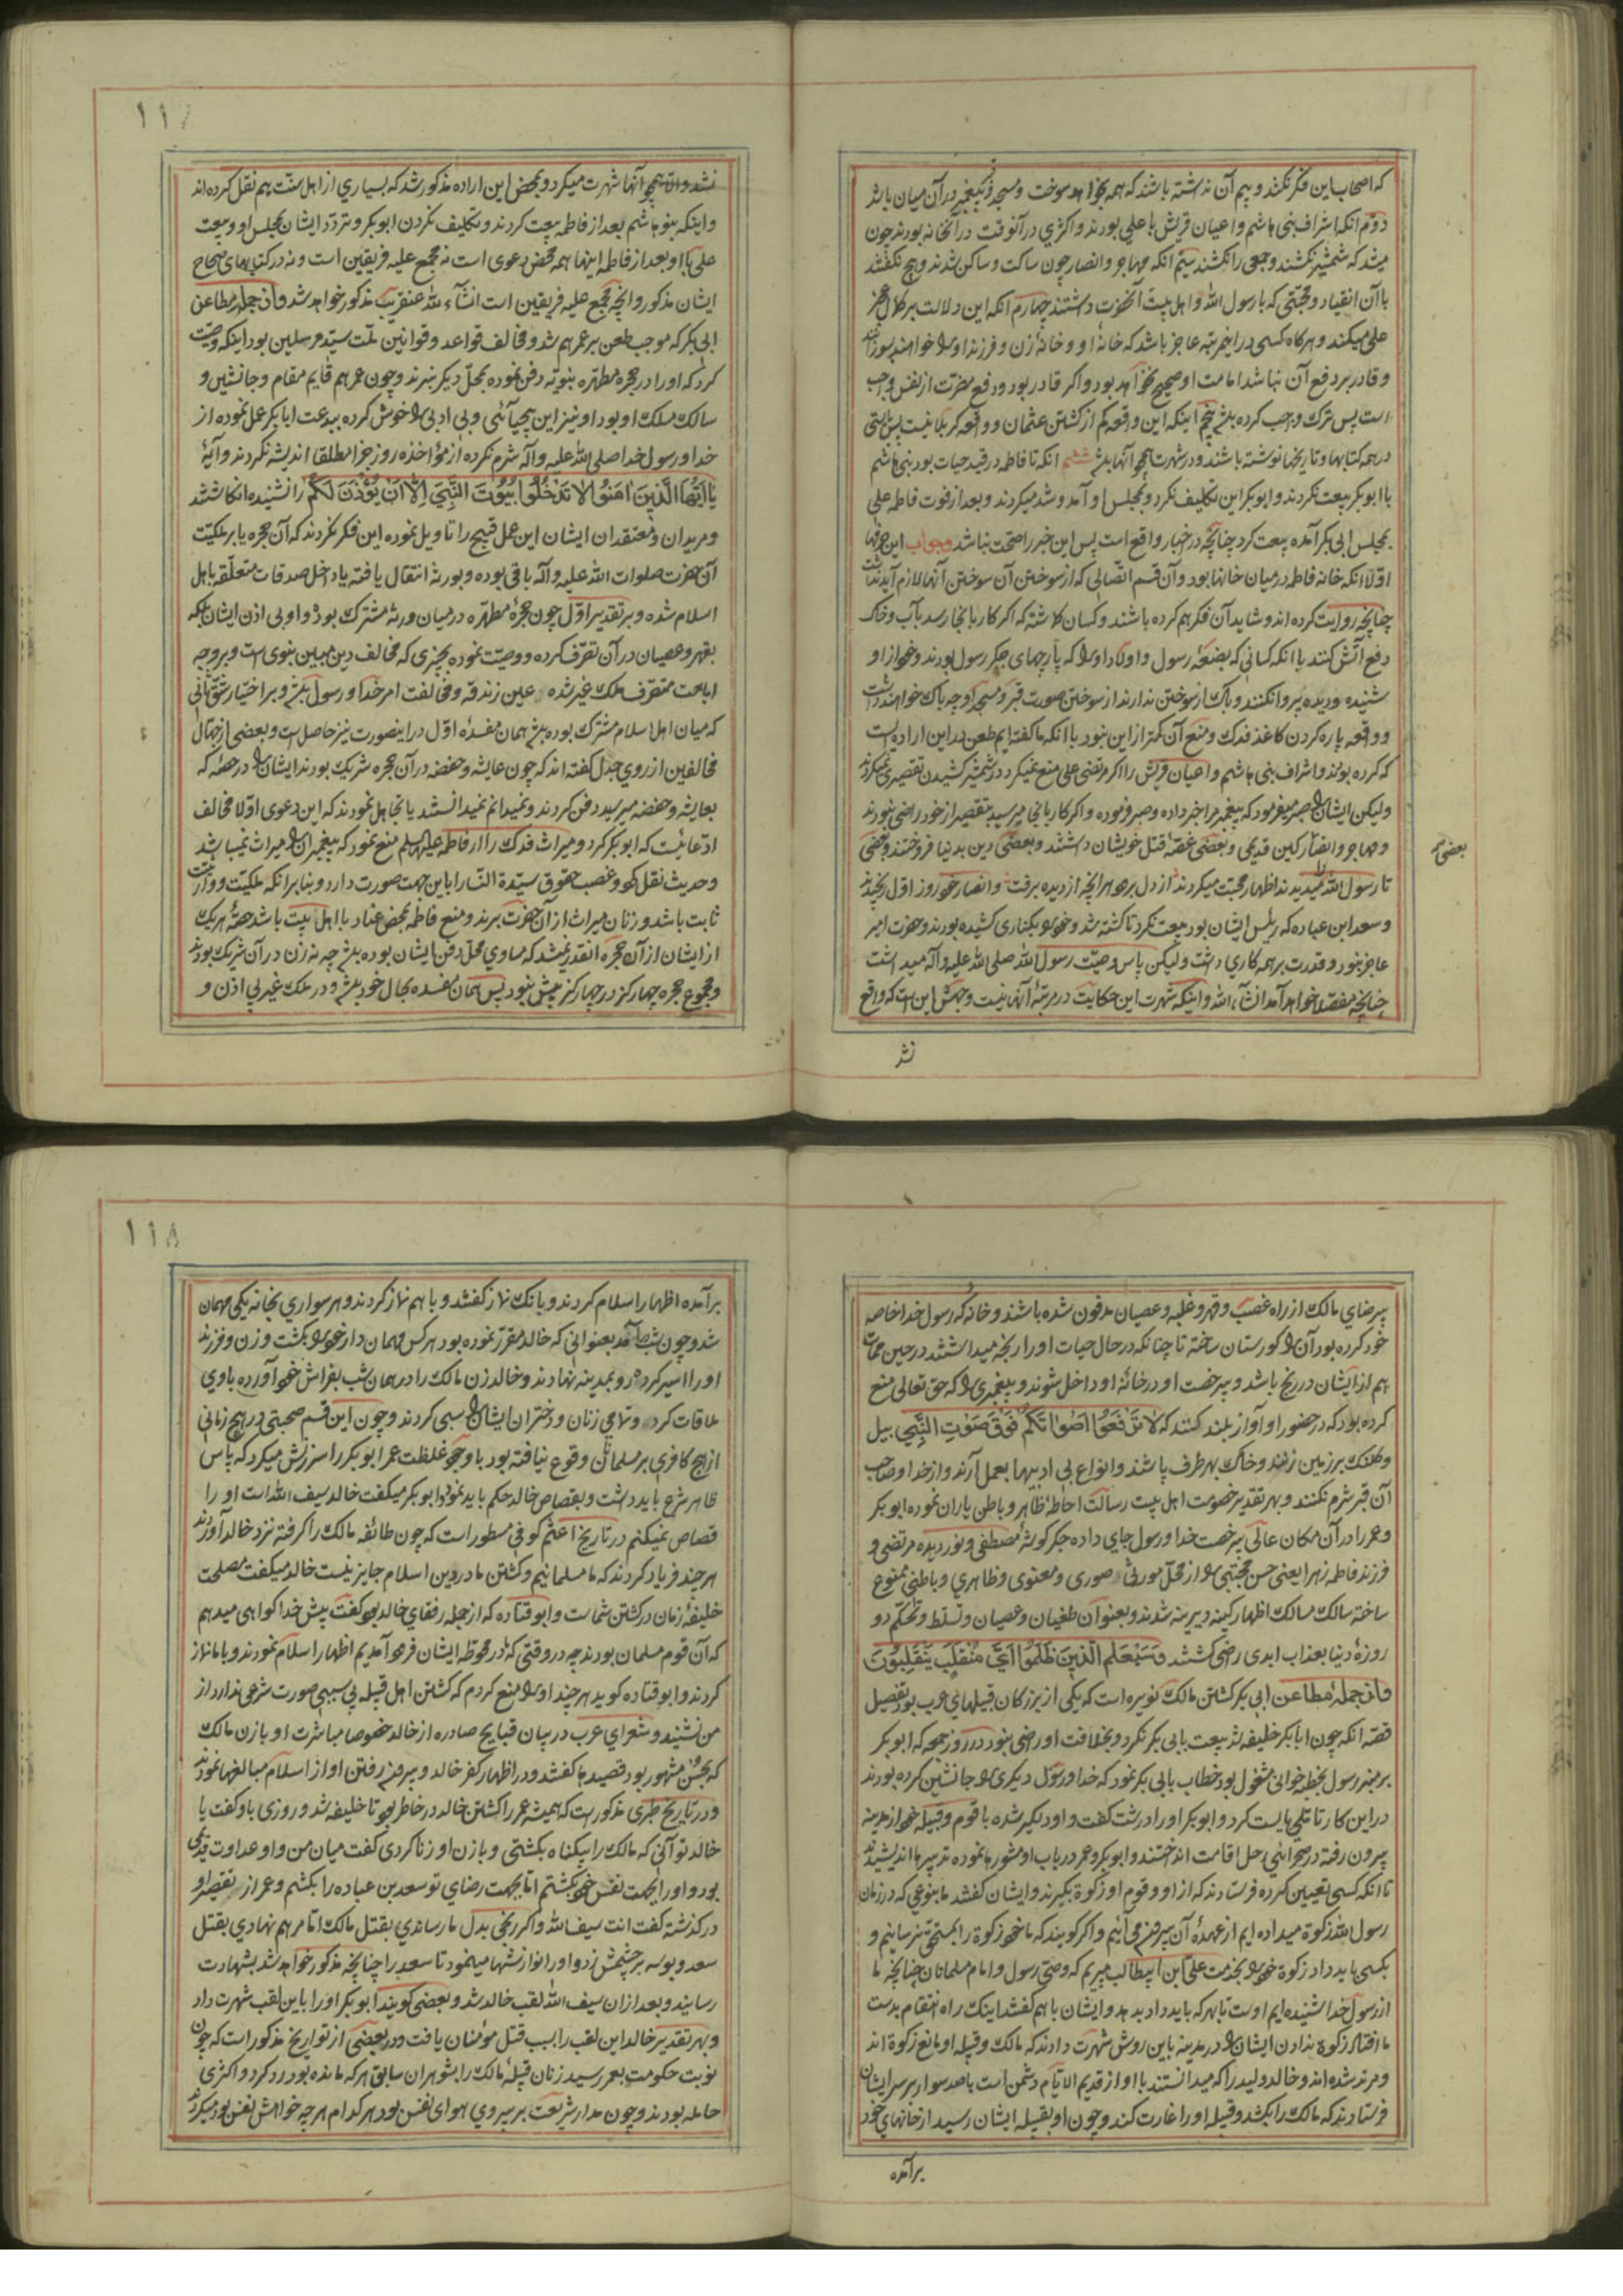 که اصحاب این فکر نکنند و بیم آن نداشته باشند که همه بخواهد سوخت و مسجد و قبر پیغمبر در آن میان باشد
دوّم انکه اشراف بنی هاشم و اعیان قریش با علی بودند و اکثری در آنوقت در آنخانه بودند چون
میشد که شمشیر نکشند و جمعی را نکشند سیّم انکه مهاجر و انصار چون ساکت و ساکن شدند و هیچ نکفتند
با آن انقیاد و محبّتی که با رسول الله و اهل بیت آنحضرت داشتند چهارم انکه این دلالت بر کمال عجز
علی میکند و هرکاه کسی در اینمرتبه عاجز باشد که خانهٔ او و خانهٔ زن و فرزند او را خواهند بسوزانند
و قادر بر دفع آن نباشد امامت او صحیح نخواهد بود و اکر قادر بود و دفع مضرّت از نفس واجب
است پس ترک واجب کرده باشد پنجم اینکه این واقعه کم از کشتن عثمان و واقعه کربلا نیست پس بایستی
در همه کتابها و تاریخها نوشته باشند و در شهرت همچو آنها باشد ششم انکه تا فاطمه در قید حیات بود بنی هاشم
با ابوبکر بیعت نکردند و ابوبکر این تکلیف نکرد و بمجلس او آمد و شد میکردند و بعد از فوت فاطمه علی
بمجلس ابی بکر آمده بیعت کرد چنانچه در اخبار واقع است پس این خبر را صحّت نباشد وجواب این حرفها
اوّلا انکه خانه فاطمه در میان خانها بود و آن قسم اتّصالی که از سوختن آن سوختن آنها لازم آید نداشت
چنانچه روایت کرده اند و شاید آن فکر هم کرده باشند و کسان کماشته که اکر کار بانجا رسد بآب و خاک
دفع آتش کنند با انکه کسانی که بضعهٔ رسول و اولاد او را که پارچهای جکر رسول بودند و خود از او
شنیده و دیده پروا نکنند و باک از سوختن ندارند از سوختن صورت قبر و مسجد او چه باک خواهند داشت
و واقعه پاره کردن کاغذ فدک و منع آن کمتر از این نبود با انکه ما کفته ایم طعن در این اراده است
که کرده بودند و اشراف بنی هاشم و اعیان قریش را اکر مرتضی علی منع نمیکرد در شمشیر کشیدن تقصیری نمیکردند
ولیکن ایشان را صبر میفرمود که پیغمبر مرا خبر داده و صبر فرموده و اکر کار بانی میرسید بتقصیر از خود راضی نبودند
و مهاجر و انصار کین قدیمی و بعضی غصّهٔ قتل خویشان داشتند و بعضی دین بدنیا فروختند و بعضی
تا رسول الله را میدیدند اظهار محبّت میکردند از دل برود هر انچه از دیده برفت و انصار خود روز اوّل
و سعد ابن عباده که رئیس ایشان بود بیعت نکرد تا کشته شد و خود را بکناری کشیده بودند و حضرت امیر
عاجز نبود و قدرت بر همه کاری داشت ولیکن پاس وصیّت رسول الله صلی الله علیه و آله میداشت
چنانچه مفصّلا خواهد آمد انشآء الله و اینکه شهرت این حکایت در مرتبهٔ آنها نیست وجهش این است که واقع
بعضی
شد
١١٧
نشد و الّا همچو آنها شهرت میکرد و بمحض این اراده مذکور شد که بسیاری از اهل سنّت هم نقل کرده اند
و اینکه بنو هاشم بعد از فاطمه بیعت کردند و تکلیف نکردن ابوبکر و تردّد ایشان بمجلس او و بیعت
علی با او بعد از فاطمه اینها همه محض دعوی است نه مجمع علیه فریقین است و نه در کتابهای صحاح
ایشان مذکور و انچه مجمع علیه فریقین است انشآء الله عنقریب مذکور خواهد شد و از جمله مطاعن
ابی بکر که موجب طعن بر عمر هم شد و مخالف قواعد و قوانین ملّت سیّد مرسلین بود اینکه وصیّت
کرد که او را در حجره مطهّره نبویّه دفن نموده بمحلّ دیکر نبرند و چون عمر هم قایم مقام و جانشین و
سالک مسلک او بود او نیز این بیحیائی و بی ادبی را خوش کرده ببدعت ابابکر عمل نموده از
خدا و رسول خدا صلی الله علیه و آله شرم نکرده از مؤاخذه روز جزا مطلقا اندیشه نکردند و آیهٔ
یا ایّها الّذین امنوا لا تدخلوا بیوت النّبیّ الّا ان یؤذن لکم را نشنیده انکاشتند
و مریدان و معتقدان ایشان این عمل قبیح را تاویل نموده این فکر نکردند که آن حجره یا بر ملکیّت
آن حضرت صلوات الله علیه و آله باقی بوده و بورثه انتقال یافته یا داخل صدقات متعلّقه باهل
اسلام شده و بر تقدیر اوّل چون حجرهٔ مطهّره در میان ورثه مشترک بود و او بی اذن ایشان بلکه
بقهر و عصیان در آن تصرّف کرده و وصیّت نموده بچیزی که مخالف دین مبین نبوی است و بر وجه
اباحت متصرّف ملک غیر شده عین زندقه و مخالفت امر خدا و رسول باشد و بر اختیار شقّ ثانی
که میان اهل اسلام مشترک بوده باشد همان مفسدهٔ اوّل در اینصورت نیز حاصل است و بعضی از جهّال
مخالفین از روی جدل کفته اند که چون عایشه و حفصه در آن حجره شریک بودند ایشان را در حصّه که
بعایشه و حفصه میرسید دفن کردند و نمیدانم نمیدانستند یا تجاهل نمودند که این دعوی اوّلا مخالف
ادّعائیست که ابوبکر کرد و میراث فدک را از فاطمه علیها السلم منع نمود که پیغمبران را میراث نمیباشد
و حدیث نقل کرد و غصب حقوق سیّدة النّسا را باین جهت صورت دارد و بنا بر انکه ملکیّت و وراثت
ثابت باشد و زنان میراث از آن حضرت برند و منع فاطمه بمحض عناد با اهل بیت باشد حصّهٔ هر یک
از ایشان از آن حجره انقدر نمیشد که مساوی محلّ دفن ایشان بوده باشد چه نه زن در آن شریک بودند
و مجموع حجره چهار کز در چهار کز بیش نبود پس همان مفسده بحال خود باشد و در ملک غیر بی اذن و
بیرضای مالک از راه غصب و قهر و غلبه و عصیان مدفون شده باشند و خانه که رسول خدا خاصه
خود کرده بود آن را کورستان ساخته تا چنانکه در حال حیات او را رنجه میداشتند در حین ممات
هم از ایشان در رنج باشد و بیرخصت او در خانهٔ او داخل شوند و پیغمبری را که حق تعالی منع
کرده بود که در حضور او آواز بلند کنند که لا ترفعوا اصواتکم فوق صوت النّبی بیل
و کلنک بر زمین زنند و خاک بهر طرف پاشند و انواع بی ادبیها بعمل آرند و از خدا و صاحب
آن قبر شرم نکنند و بهر تقدیر خصومت اهل بیت رسالت احاطهٔ ظاهر و باطن یاران نموده ابوبکر
و عمر را در آن مکان عالی بیرخصت خدا و رسول جای داده جکر کوشهٔ مصطفی و نور دیده مرتضی و
فرزند فاطمه زهرا یعنی حسن مجتبی را از محلّ موروثی صوری و معنوی و ظاهری و باطنی ممنوع
ساخته سالک مسالک اظهار کینه دیرینه شدند و بعنوان طغیان و عصیان و تسلّط و تحکّم دو
روزهٔ دنیا بعذاب ابدی راضی کشتند و سیعلم الّذین ظلموا ایّ منقلب ینقلبون
و از جملهٔ مطاعن ابی بکر کشتن مالک نویره است که یکی از بزرکان قبیلهای عرب بود تفصیل
قصّه انکه چون ابابکر خلیفه شد بیعت بابی بکر نکرد و بخلافت او راضی نبود در روز جمعه که ابوبکر
بر منبر رسول بخطبه خوانی مشغول بود خطاب بابی بکر نمود که خدا و رسول دیکری را جانشین کرده بودند
در این کار تاملی بایست کرد و ابوبکر او را درشت کفت و او دلکیر شده با قوم و قبیله خود از مدینه
بیرون رفته در صحرائی رحل اقامت انداختند و ابوبکر و عمر در باب او مشورها نموده تدبیرها اندیشیدند
تا انکه کسی تعیین کرده فرستادند که از او و قوم او زکوة بکیرند و ایشان کفتند ما بنوعی که در زمان
رسول الله زکوة میداده ایم از عهدهٔ آن بیرون می آئیم و اکر کویند که ما خود زکوة را بمستحق نیز نرسانیم و
بکسی باید داد زکوة خود را بخدمت علی ابن ابیطالب میبریم که وصیّ رسول و امام مسلمانان چنانچه ما
از رسول خدا شنیده ایم اوست تا بهر که باید داد بدهد و ایشان با هم کفتند اینک راه انتقام بدست
ما افتاد زکوة ندادن ایشان را در مدینه باین روش شهرت دادند که مالک و قبیله او مانع زکوة اند
و مرتد شده اند و خالد ولید را که میدانستند با او از قدیم الایّام دشمن است با صد سوار بر سر ایشان
فرستادند که مالک را بکشد و قبیله او را غارت کند و چون او بقبیله ایشان رسید از خانهای خود
برآمده
١١٨
برآمده اظهار اسلام کردند و بانک نماز کفتند و با هم نماز کردند و هر سواری بخانه یکی مهمان
شد و چون شب در آمد بعنوانی که خالد مقرّر نموده بود هر کس مهمان دار خود را بکشت و زن و فرزند
او را اسیر کرده رو بمدینه نهادند و خالد زن مالک را در همان شب بفراش خود آورده با وی
ملاقات کرد و تمامی زنان و دختران ایشان را سبی کردند و چون این قسم صحبتی در هیچ زمانی
از هیچ کافری بر مسلمانان وقوع نیافته بود با وجود غلظت عمر ابوبکر را سرزنش میکرد که پاس
ظاهر شرع باید داشت و بقصاص خالد حکم باید نمود و ابوبکر میکفت خالد سیف الله است او را
قصاص نمیکنم در تاریخ اعثم کوفی مسطور است که چون طائفه مالک را کرفته نزد خالد آوردند
هر چند فریاد کردند که ما مسلمانیم و کشتن ما در دین اسلام جایز نیست خالد میکفت مصلحت
خلیفهٔ زمان در کشتن شماست و ابو قتاده که از جمله رفقای خالد بود کفت پیش خدا کواهی میدهم
که آن قوم مسلمان بودند چه در وقتی که در محوطه ایشان فرود آمدیم اظهار اسلام نمودند و با ما نماز
کردند و ابو قتاده کوید هر چند او را منع کردم که کشتن اهل قبله بی سببی صورت شرعی ندارد از
من نشنید و شعرای عرب در بیان قبایح صادره از خالد خصوصا مباشرت او با زن مالک
که بحسن مشهور بود قصیدها کفتند و در اظهار کفر خالد و بیرون رفتن او از اسلام مبالغها نمودند
و در تاریخ طبری مذکور است که همیشه عمر را کشتن خالد در خاطر بود تا خلیفه شد و روزی باو کفت یا
خالد تو آنی که مالک را بیکناه بکشتی و با زن او زنا کردی کفت میان من و او عداوت قدیمی
بود و او را بجهت نفس خود بکشتم امّا بجهت رضای تو سعد بن عباده را بکشتم و عمر از تقصیر او
درکذشته کفت انت سیف الله و اکر رنجی بدل ما رساندی بقتل مالک امّا مرهم نهادی بقتل
سعد و بوسه بر چشمش زد و او را نوازشها مینمود تا سعد را چنانچه مذکور خواهد شد بشهادت
رسانید و بعد از ان سیف الله لقب خالد شد و بعضی کویند ابوبکر او را باین لقب شهرت داد
و بهر تقدیر خالد این لقب را بسبب قتل مؤمنان یافت و در بعضی از تواریخ مذکور است که چون
نوبت حکومت بعمر رسید زنان قبیلهٔ مالک را بشوهران سابق هر که مانده بود رد کرد و اکثری
حامله بودند و چون مدار شریعت بر پیروی هوای نفس بود هر کدام هر چه خواهش نفس بود میکرد